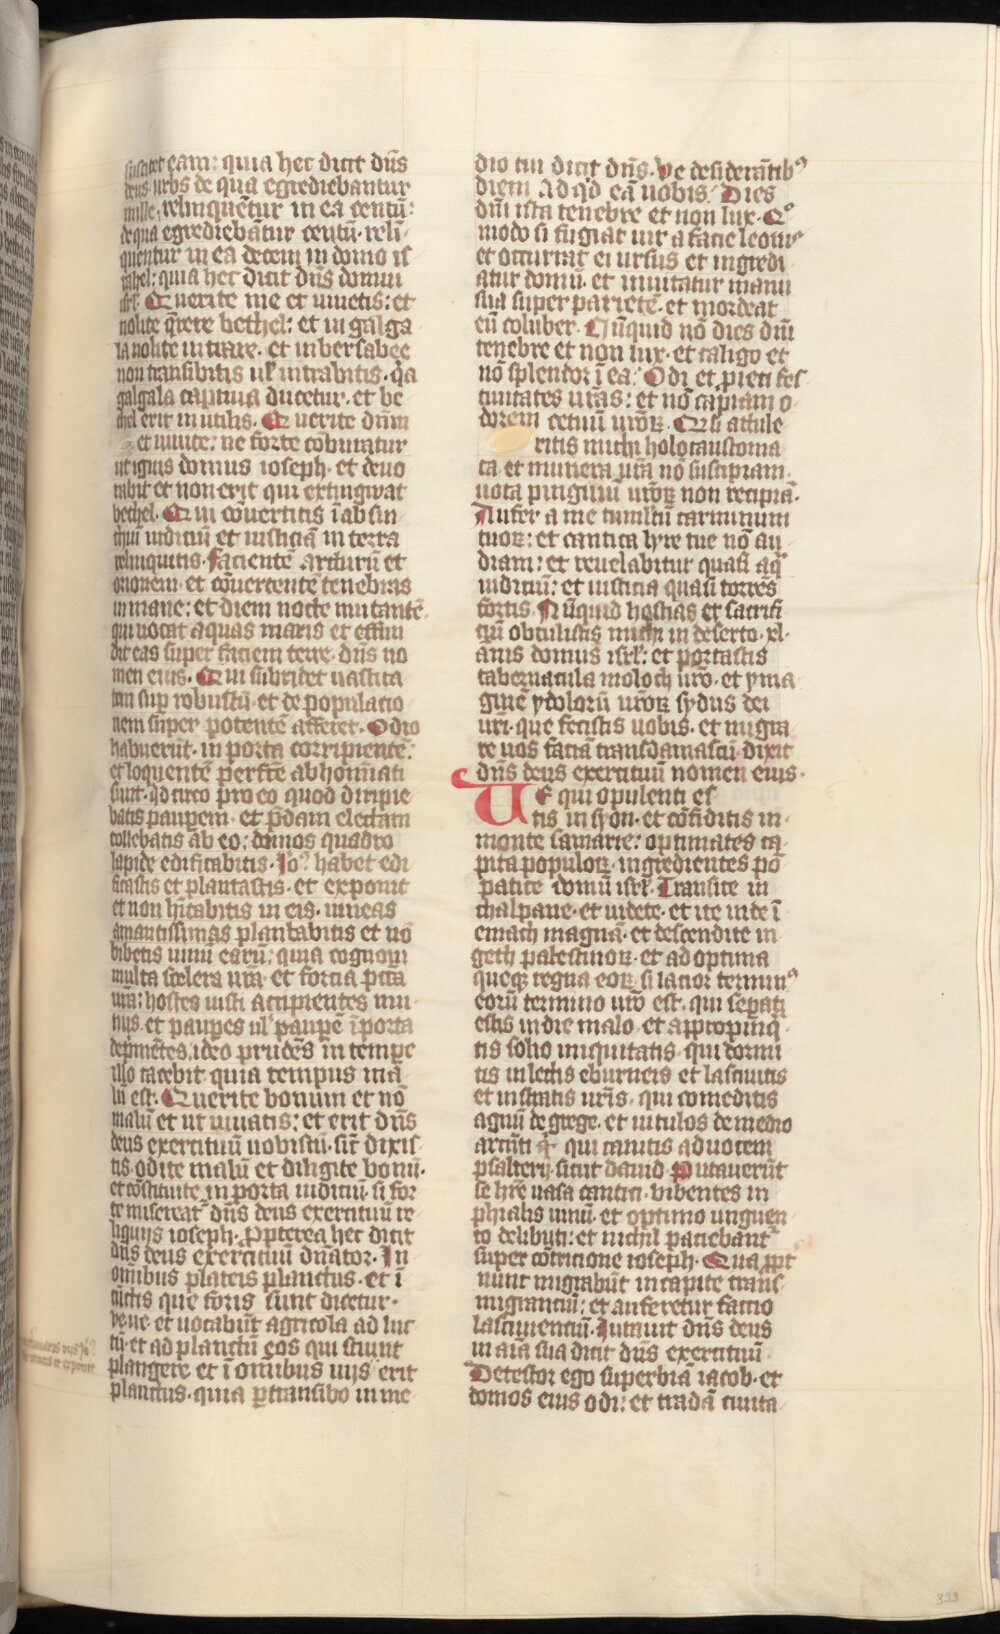 suscitet eam: quia hec dicit dn̄s
deus· urbs de qua egrediebantur
mille, relinquētur in ea centū:
de qua egrediebātur centū· reli
quentur in ea decem in domo is
rahel: quia hec dicit dn̄s domui
isrl̄· Querite me et uiuetis: et
nolite q̄rere bethel: et in galga
la nolite intrare· et in bersabee
non transibitis ul̓ intrabitis· q̄a
galgala captiua ducetur· et be
thel erit inutilis· Querite dn̄m
et uiuite: ne forte cōburatur
ut ignis domus ioseph· et deuo
rabit et non erit qui extingwat
bethel· Qui cōuertitis ī absin
thiū iudiciū et iusticiā in terra
relinquitis· facientē arcturū et
orionem· et cōuertentē tenebras
in mane: et diem nocte mutantē·
qui uocat aquas maris et effun
dit eas super faciem terre· dn̄s no
men eius· Qui subridet uastita
tem sup̄ robustū· et depopulacio
nem super potentē afferet· Odio
habuerūt· in porta corripientē:
et loquentē perfc̄e abhomīati
sunt· idcirco pro eo quod diripie
batis pauperem· et p̄dam electam
tollebatis ab eo: domos quadro
lapide edificabitis· Jo? habet edi
ficastis et plantastis· et exponit
et non hītabitis in eis· uineas
amantissimas plantabitis et nō
bibetis uinū earū: quia cognoui
multa scelera ur̄a· et forcia pc̄ca
ur̄a: hostes iusti accipientes mu
nus· et paup̄es ul̓ paup̄ē ī porta
dep̄mētes, ideo prudēs in temp̄e
illo tacebit quia tempus ma
lū est· Querite bonum et nō
malū et ut uiuatis: et erit dn̄s
deus exercituū uobiscū· sic̄ dixis
tis· odite malū et diligite bonū·
et cōstituite in porta iudiciū· si for
te misereat᷑ dn̄s deus exercituū re
liquijs ioseph· Propterea hec dicit
dn̄s deus exercituū dn̄ator· In
omībus plateis planctus· et ī
cūctis que foris sunt dicetur·
ve ue· et uocabūt agricolā ad luc
tū· et ad planctū eos qui sciunt
plangere et ī omībus uijs erit
planctus· quia p̄transibo in me
dio tui dicit dn̄s· Ve desiderātibꝰ
diem· Ad qd̄ eā uobis Dies
dn̄i ista tenebre et non lux· Qº
modo si fugiat uir a facie leonis
et occurrat ei ursus et ingredi
atur domū· et innitatur manu
sua super parietē· et mordeat
eū coluber· Nūquid nō dies dn̄i
tenebre et non lux· et caligo et
nō splendor ī ea: Odi et proieci fes
tiuitates ur̄as: et nō capiam o
dorem cetuū ur̄oꝝ· Qr̄ si attule
ritis michi holocaustoma
ta et munera ur̄a nō suscipiam·
uota pinguiū ur̄oꝝ non recipiā·
Aufer a me tumultū carminum
tuoꝝ: et cantica lyre tue nō au
diam: et reuelabitur quasi aq̄
iudiciū: et iusticia quasi torrēs
fortis· Nūquid hostias et sacrifi
ciū obtulistis michi in deserto· xl·
annis domus isrl̄: et portastis
tabernacula moloch ur̄o· et yma
ginē ydolorū ur̄oꝝ sydus dei
ur̄i· que fecistis uobis· et migra
re uos faciā transdamascū· dixit
dn̄s deus exercituū nomen eius·
Ve qui opulenti es
tis in syon· et cōfiditis in
monte samarie: optimates ca
pita populoꝝ· ingredientes pō
patice domū isrl̄· Transite in
chalpane· et uidete· et ite inde ī
emath magnā· et descendite in
geth palestinoꝝ· et ad optima
queq; regna eoꝝ si lacior terminꝰ
eorū termino ur̄o est· qui sep̄ati
estis in die malo· et appropinq̄
tis solio iniquitatis· qui dormi
tis in lectis eburneis et lasciuitis
et in stratis ur̄is· qui comeditis
agnū de grege· et uitulos de medio
armēti qui canitis ad uocem
psalterij· sicut dauid Putauerūt
se hr̄e uasa cantici· bibentes in
phialis uinū· et optimo unguen
to delibuti: et nichil paciebant᷑
super cōtricione ioseph· Quapp̄t
nunc migrabūt in capite trans
migranciū: et auferetur factio
lasciuienciū· Iurauit dn̄s deus
in aīa sua dicit dn̄s exercituū
Detestor ego superbiā iacob· et
domos eius odi: et tradā ciuita
339